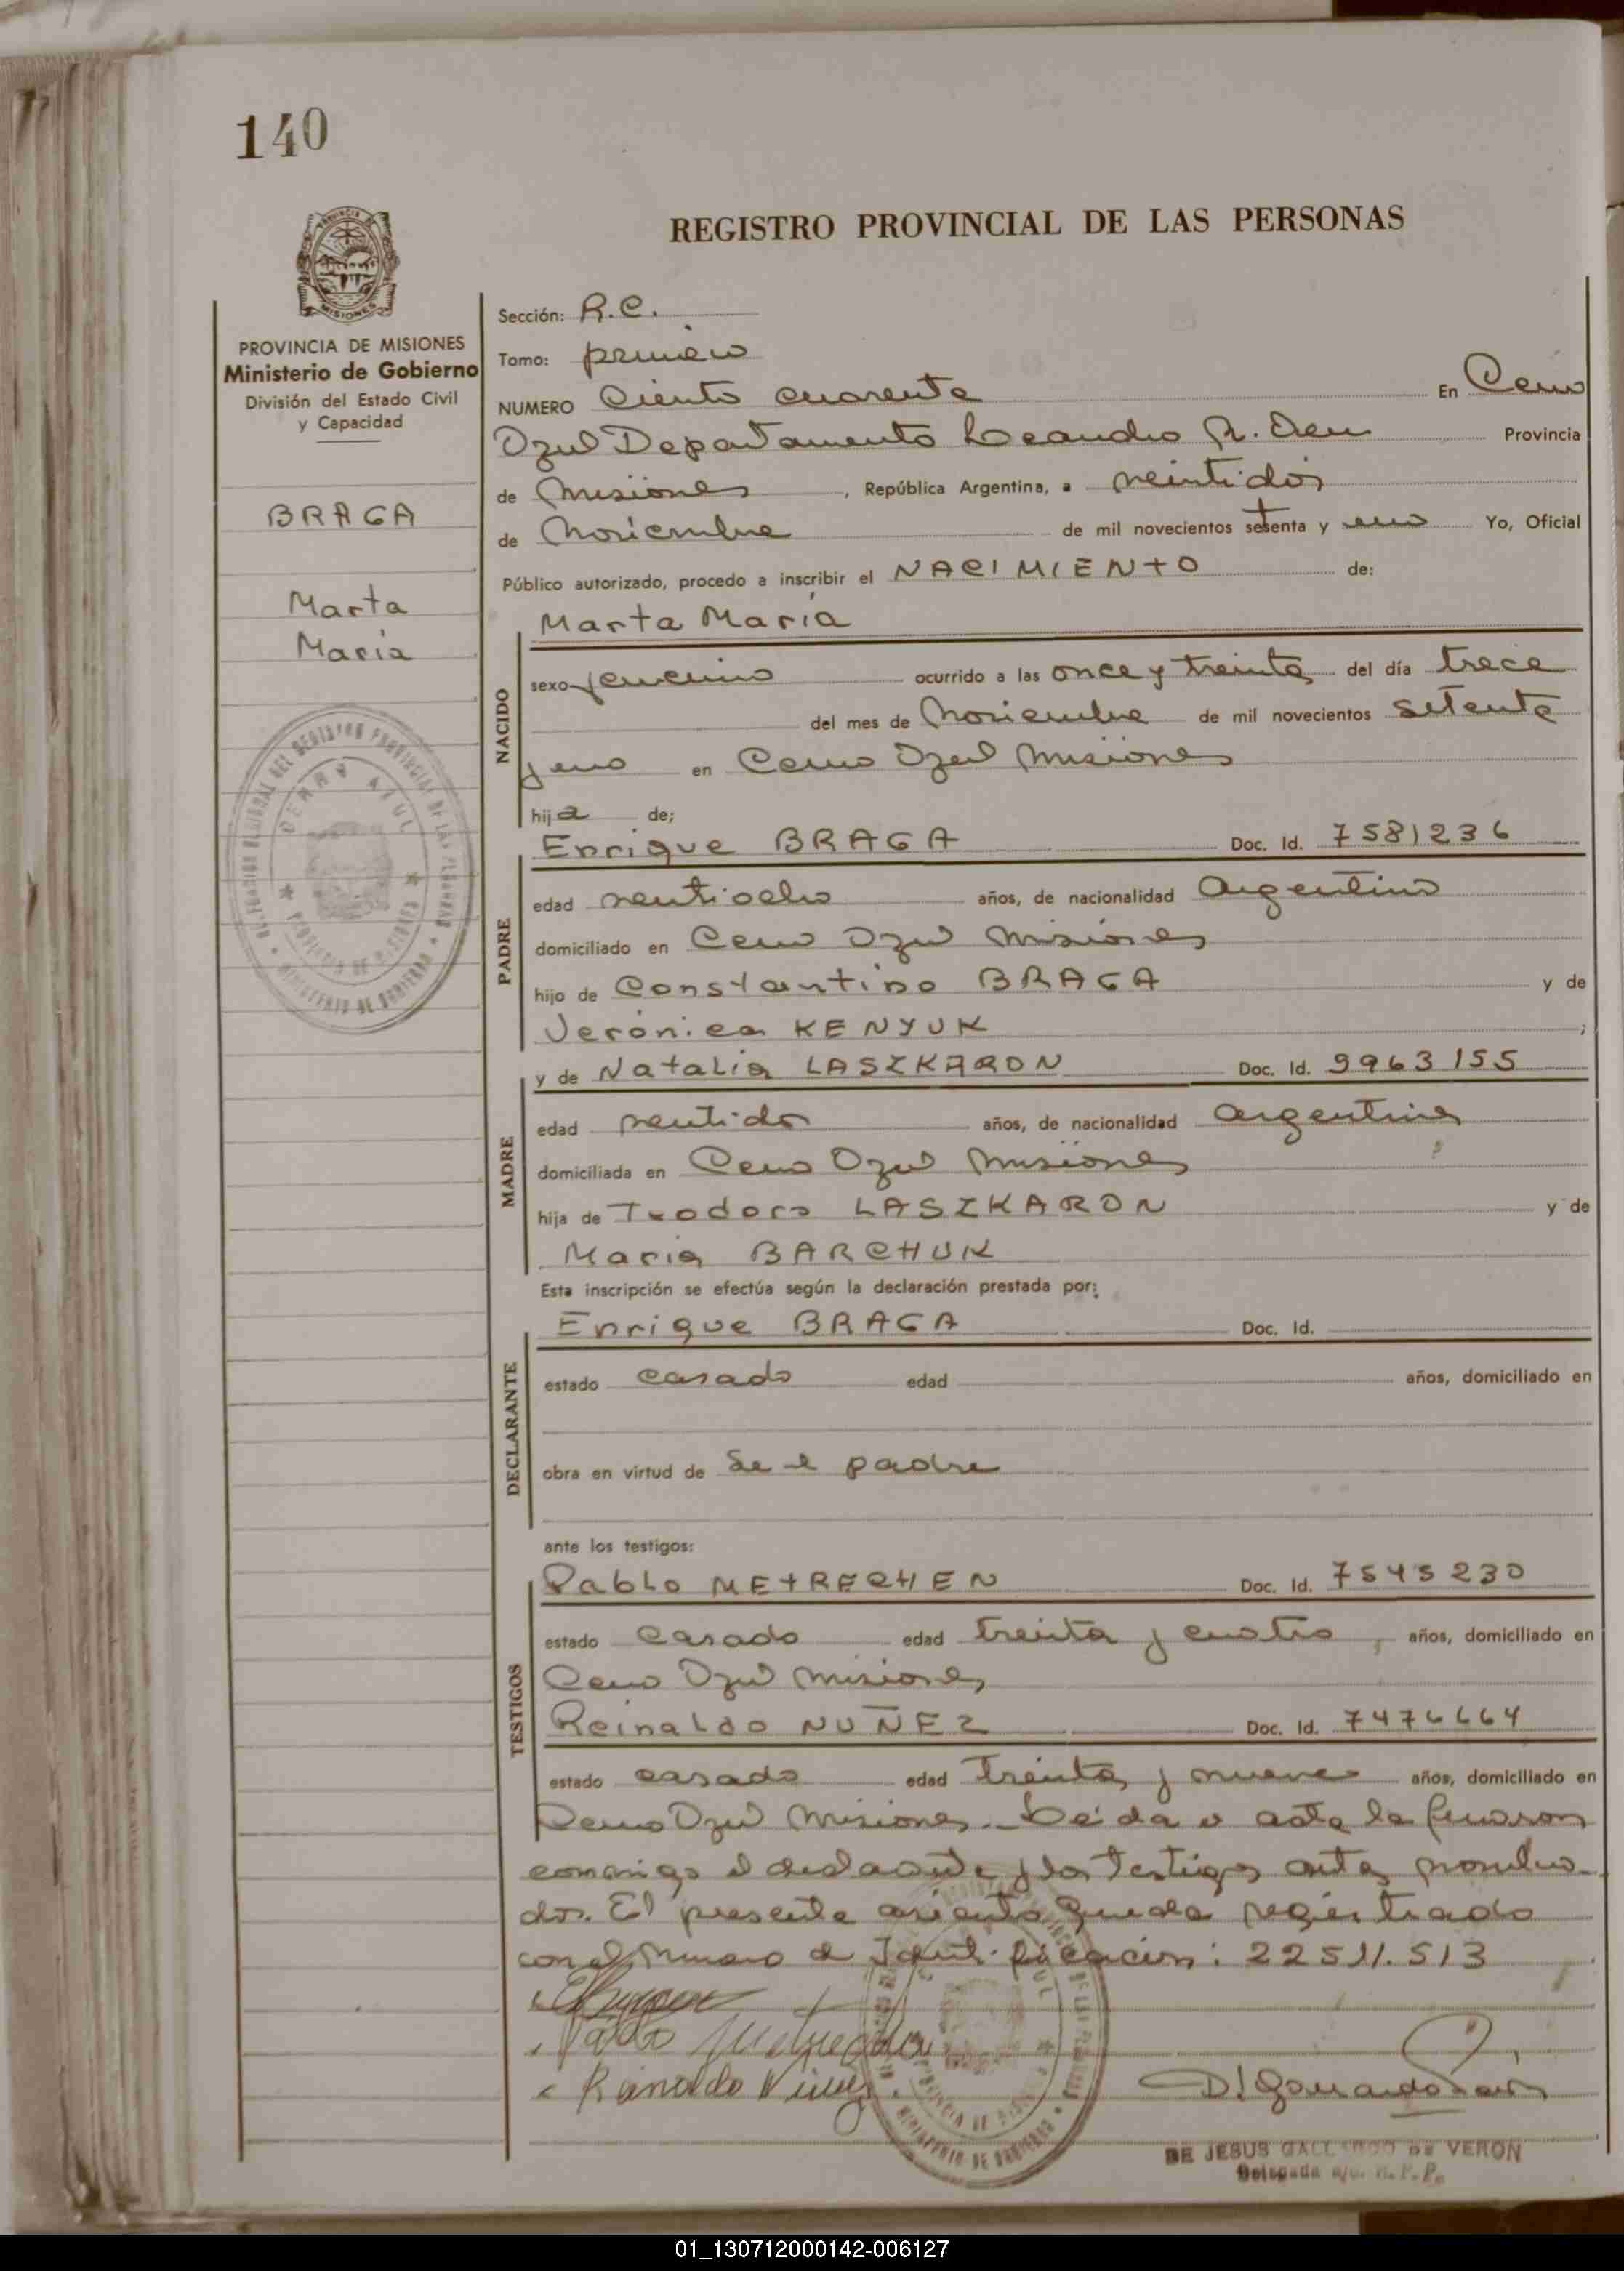 140
REGISTRO PROVINCIAL DE LAS PERSONAS
PROVINCIA DE MISIONES
Ministerio de Gobierno
División del Estado Civil
y Capacidad
BRAGA
Marta
María
Sección: R.C.
Tomo: primero
NUMERO Ciento cuarenta En Cerro
Azul Departamento Leandro N. Alem Provincia
de Misiones, República Argentina, a veintidós
de Noviembre de mil novecientos setenta y uno Yo, Oficial
Público autorizado, procedo a inscribir el NACIMIENTO de:
Marta María
NACIDO
sexo femenino ocurrido a las once y treinta del día trece
del mes de Noviembre de mil novecientos setenta
y uno en Cerro Azul Misiones
hija de;
Enrique BRAGA Doc. Id. 7581236
PADRE
edad veintiocho años, de nacionalidad Argentino
domiciliado en Cerro Azul Misiones
hijo de Constantino BRAGA y de
Verónica KENYUK ;
y de Natalia LASZKARON Doc. Id. 9963155
MADRE
edad veintidos años, de nacionalidad argentina
domiciliada en Cerro Azul Misiones
hija de Teodoro LASZKARON y de
María BARCHUK
Esta inscripción se efectúa según la declaración prestada por:
Enrique BRAGA Doc. Id.
DECLARANTE
estado casado edad años, domiciliado en
obra en virtud de Ser el padre
ante los testigos:
Pablo METRECHEN Doc. Id. 7545230
TESTIGOS
estado casado edad treinta y cuatro, años, domiciliado en
Cerro Azul Misiones
Reinaldo NUÑEZ Doc. Id. 7476664
estado casado edad treinta y nueve años, domiciliado en
Cerro Azul Misiones. Leída el acta la firmaron
conmigo el declarante y los testigos antes nombra-
dos. El presente asiento queda registrado
con el Número de Identificación: 22511.513
Reinaldo Nuñez
DE JESUS GALLARDO DE VERON
Delegada a/c. R.P.P.
01_130712000142-006127